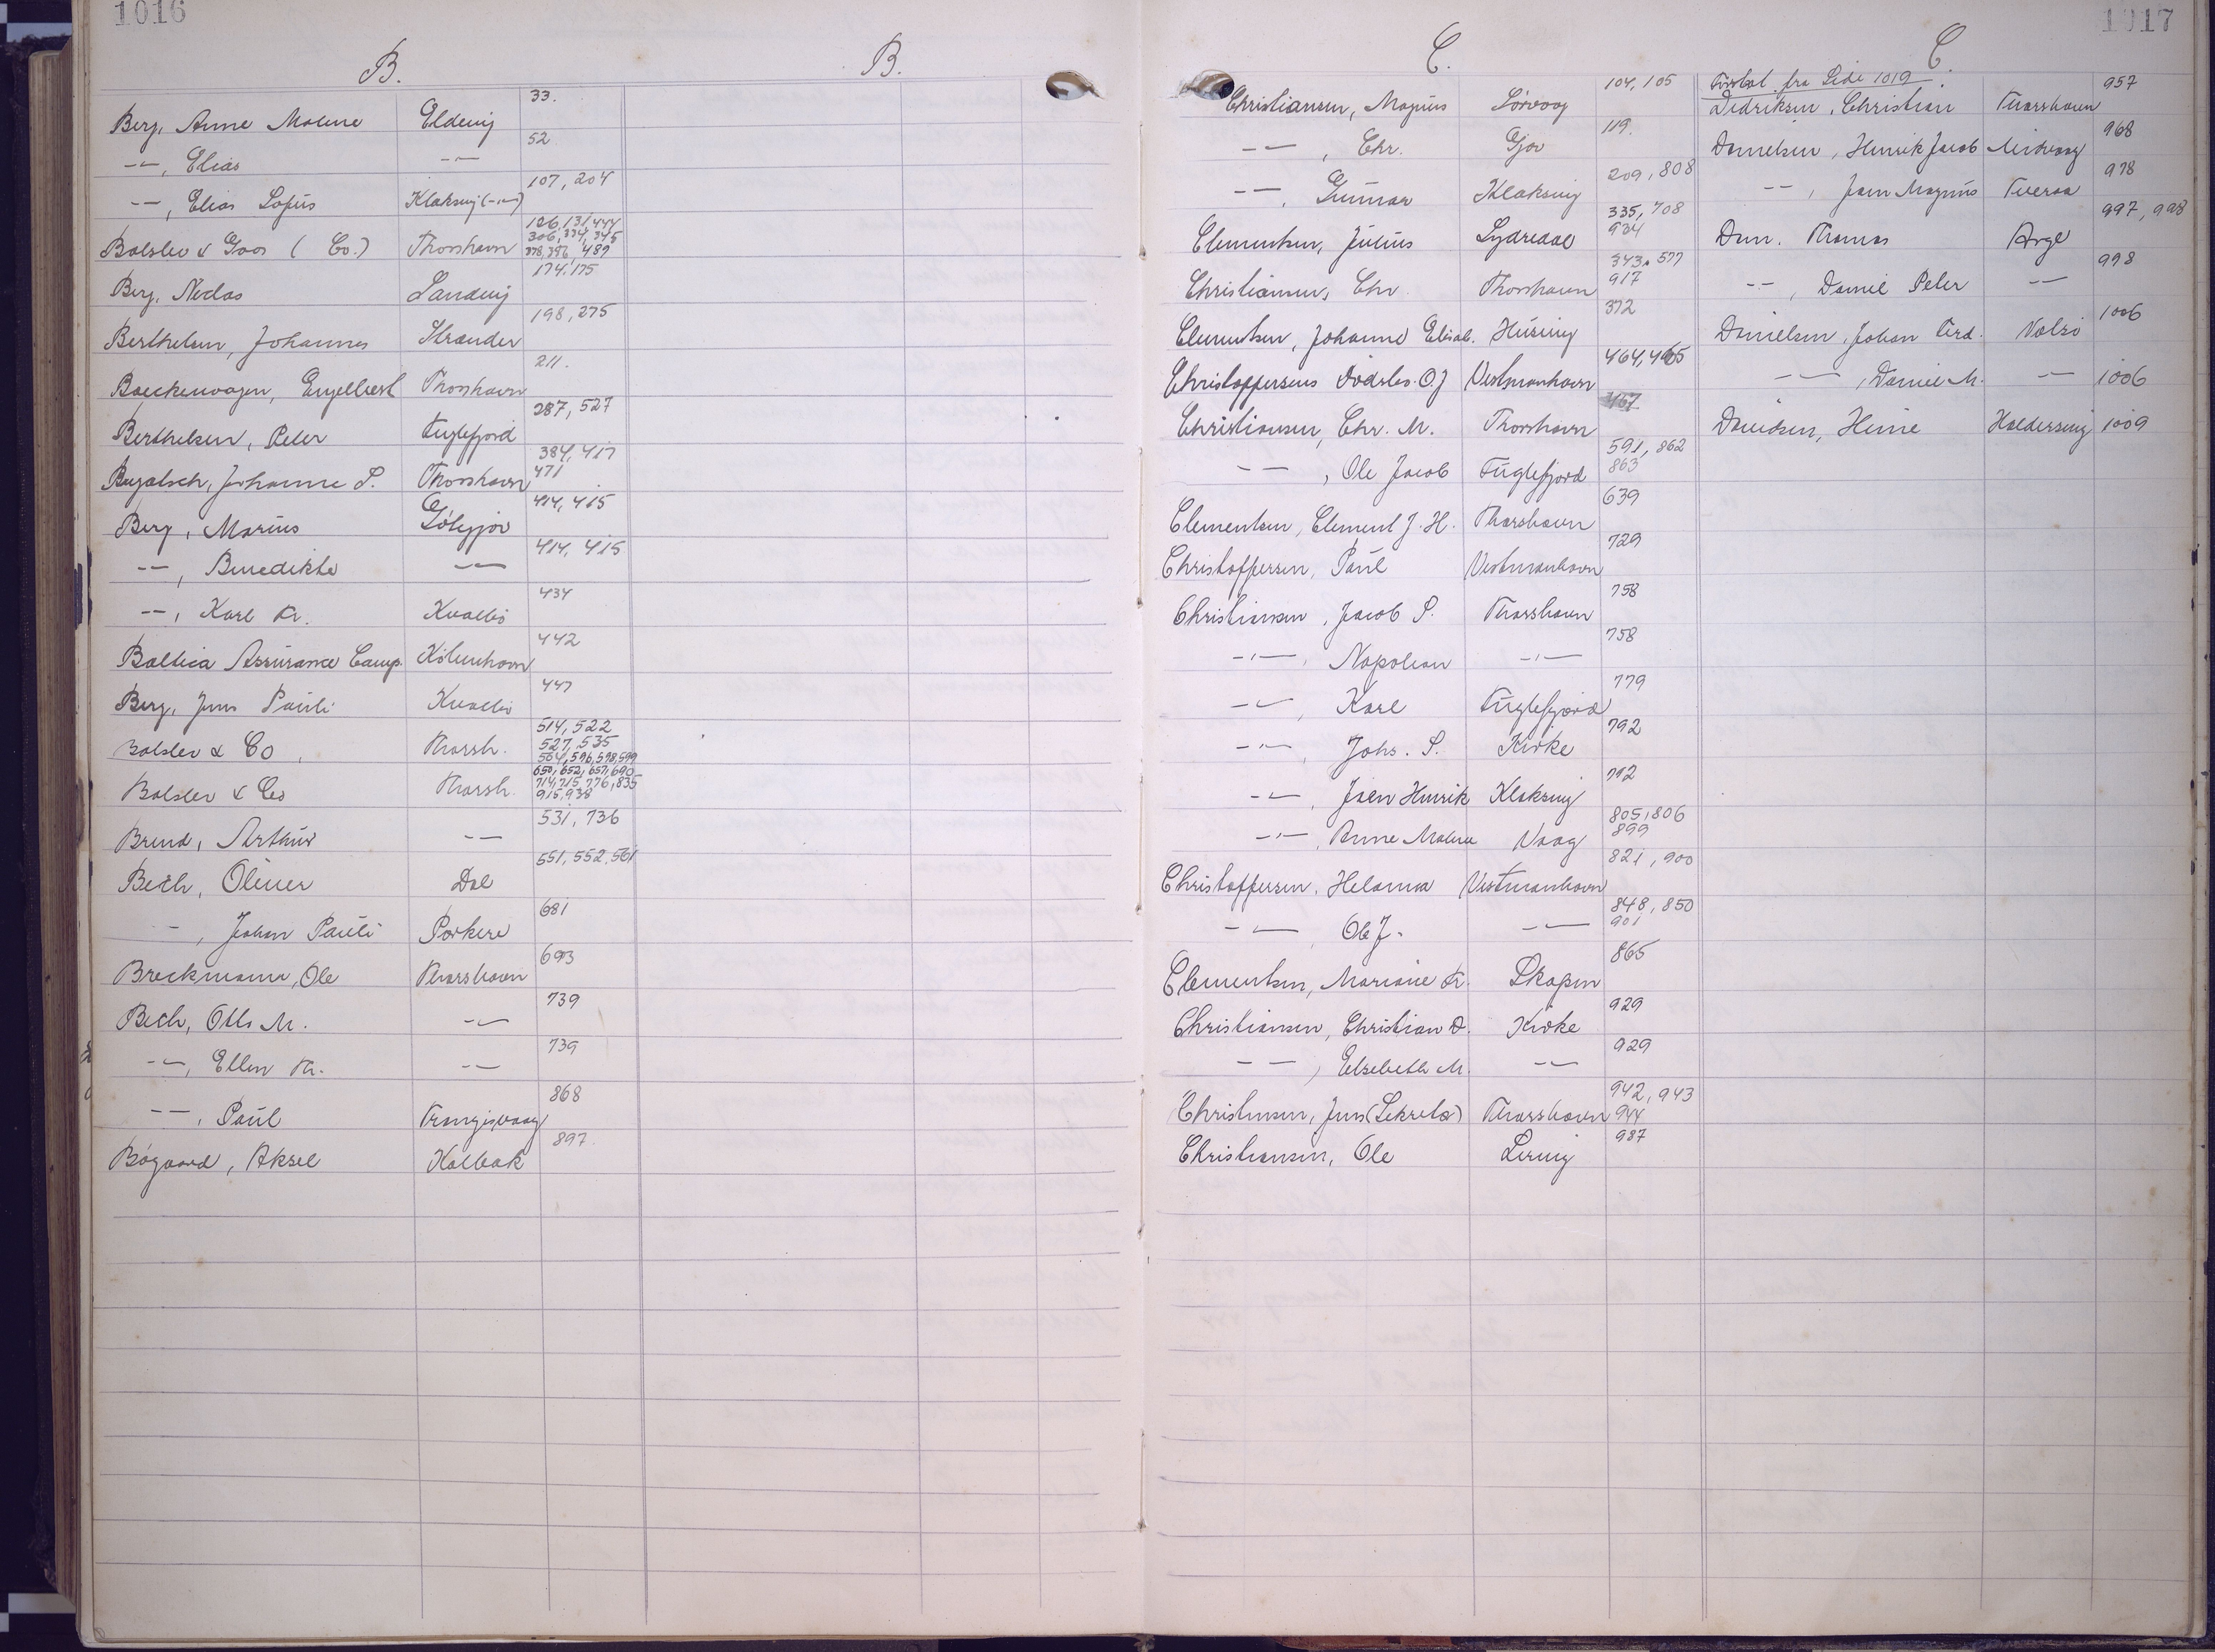 1016
B.
B.
Berg, Anne Malene Eldevig 33.
-"-, Elias -"- 52
-"-, Elias Sofus Klaksvig (-"-) 107, 204
Balslev & Goos ( Co.) Thorshavn 126, 131, 444 306, 334, 345 378, 396, 489
Berg, Niclas Sandvig 174, 175
Berthelsen, Johannes Strænder 198, 275
Baeckenwagen, Engelbert Thorshavn 211.
Berthelsen, Peter Fuglefjord 287, 527
Johanne S. Thorshavn 384, 417 471
Berg, Marius Götegjov 414, 415
-"-, Benedikte -"- 414, 415
-"-, Karl Kr. Kvalbö 434
Baltica Assurance Comp. Köbenhavn 442
Berg, Jens Pauli Kvalbö 447
Balslev & Co. Thorsh. 514, 522 527, 535 564, 596, 598, 599
Balslev & Co Thorsh. 650, 652, 657, 690 714, 715, 776, 835 915, 938
Brend, Arthur -"- 531, 736
Bech, Oliver Dal 551, 552, 561
-, Johan Pauli Porkere 681
Breckmann, Ole Thorshavn 693
Bech, Otto M. -"- 739
-"-, Ellen Kr. -"- 739
-"-, Paul Trangisvaag 868
Bögaard, Aksel Holbæk 897.
1017
C.
C.
Christiansen, Magnus Sörvaag 104, 105
-"-, Chr. Gjov 119.
-"-, Gunnar Klaksvig 209, 808
Clementsen, Julius Sydredal 335, 708 934
Christiansen, Chr. Thorshavn 343, 577 917
Clementsen, Johanne Elisab. Husevig 372
Christoffersens Dödsbo O. J Vestmanhavn 464, 465
Christiansen, Chr. M. Thorshavn 467
-"-, Ole Jacob Fuglefjord 591, 862 863
Clementsen, Clement J. H. Thorshavn 639
Christoffersen, Paul Vestmanhavn 729
Christiansen, Jacob S. Thorshavn 758
-"-, Napoleon -"- 758
-"-, Karl Fuglefjord 779
-"-, Johs. S. Kirke 792
-"-, Joen Henrik Klaksvig 712
-"-, Anne Malene Vaag 805, 806 899
Christoffersen, Helanna Vestmanhavn 821, 900
-"- Ole J. -"- 848, 850 901
Clementsen, Mariane Kr. Skopen 865
Christiansen, Christian D. Kirke 929
-"-, Elsebeth M. -"- 929
Christensen, Jens (Sekretær) Thorshavn 942, 943 944
Christiansen, Ole Lervig 987
Fortsat fra Side 1019
Didriksen, Christian Thorshavn 957
Danielsen, Henrik Jacob Midvaag 968
-"-, Joen Magnus Tveraa 978
Dam, Thomas Arge 997, 998
-"-, Daniel Peter -"- 998
Danielsen, Johan Ferd. Nolsö 1006
-"-, Daniel M. -"- 1006
Davidsen, Heine Haldersvig 1009